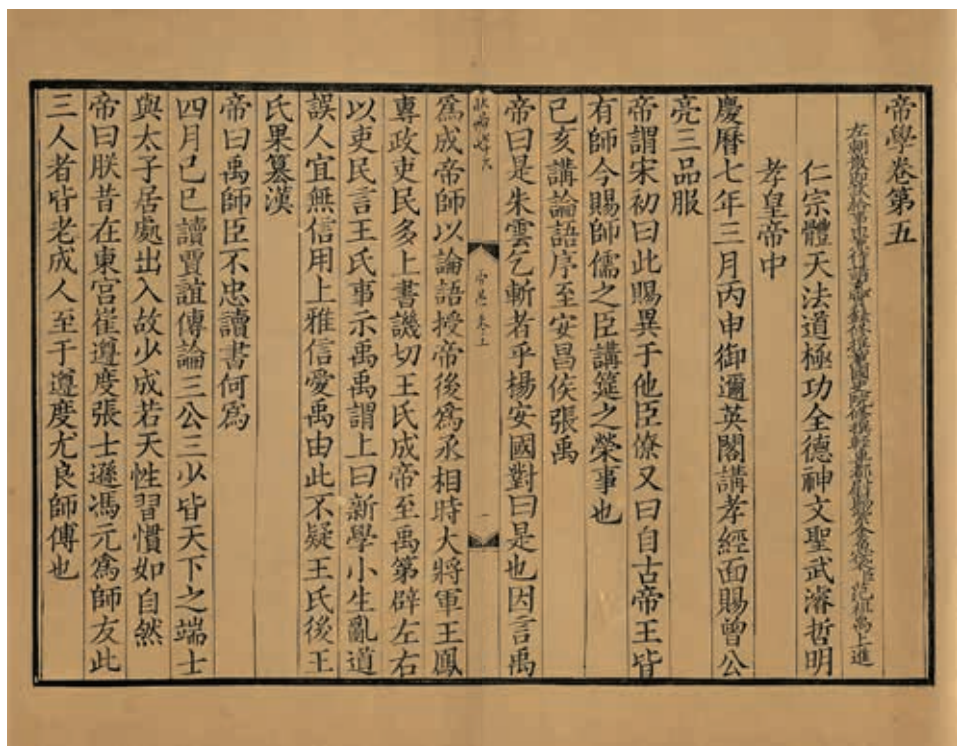 帝學卷第五
仁宗體天法道極功全德神文聖武濬哲明
孝皇帝中
慶曆七年三月丙申御邇英閣講孝經面賜曾公
亮三品服
帝謂宋初曰此賜異于他臣僚又曰自古帝王皆
有師今賜師儒之臣講筵之榮事也
己亥講論語序至安昌侯張禹
帝曰是朱雲乞斬者乎楊安國對曰是也因言禹
爲成帝師以論語授帝後爲丞相時大將軍王鳳
專政吏民多上書譏切王氏成帝至禹第辟左右
以吏民言王氏事示禹禹謂上曰新學小生亂道
誤人宜無信用上雅信愛禹由此不疑王氏後王
氏果篡漢
帝曰禹師臣不忠讀書何爲
四月己巳讀賈誼傳論三公三少皆天下之端士
與太子居處出入故少成若天性習慣如自然
帝曰朕昔在東宮崔遵度張士遜馮元爲師友此
三人者皆老成人至于遵度尤良師傅也